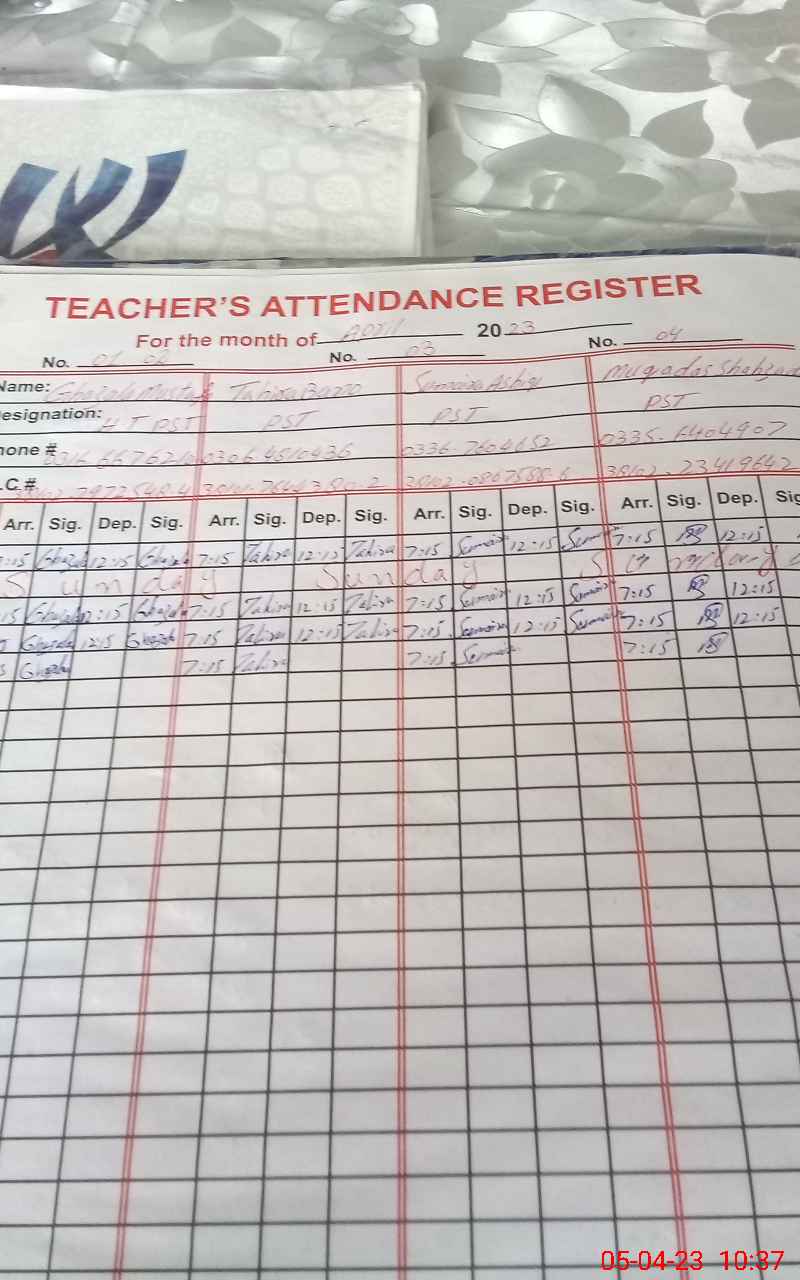 TEACHER'S ATTENDANCE REGISTER
For the month of April 2023
No. 01 02 No. 03 No. 04
Name: Ghazala Mustafa Tahira Bano Sumaira Ashiq Muqadas Shahzad
esignation: HT PST PST PST PST
hone # 0306.4510436 0336.7604652 0335.6404907
.C.#
Arr. Sig. Dep. Sig. Arr. Sig. Dep. Sig. Arr. Sig. Dep. Sig. Arr. Sig. Dep. Sig
:15 Ghazala 12:15 Ghazala 7:15 Tahira 12:15 Tahira 7:15 Sumaira 12:15 Sumaira 7:15 12:15
Sunday Sunday
15 Ghazala 12:15 Ghazala 7:15 Tahira 12:15 Tahira 7:15 Sumaira 12:15 Sumaira 7:15 12:15
Ghazala 12:15 Ghazala 7:15 Tahira 12:15 Tahira 7:15 Sumaira 12:15 Sumaira 7:15 12:15
Ghazala 7:15 Tahira 7:15 Sumaira 7:15
05-04-23 10:37